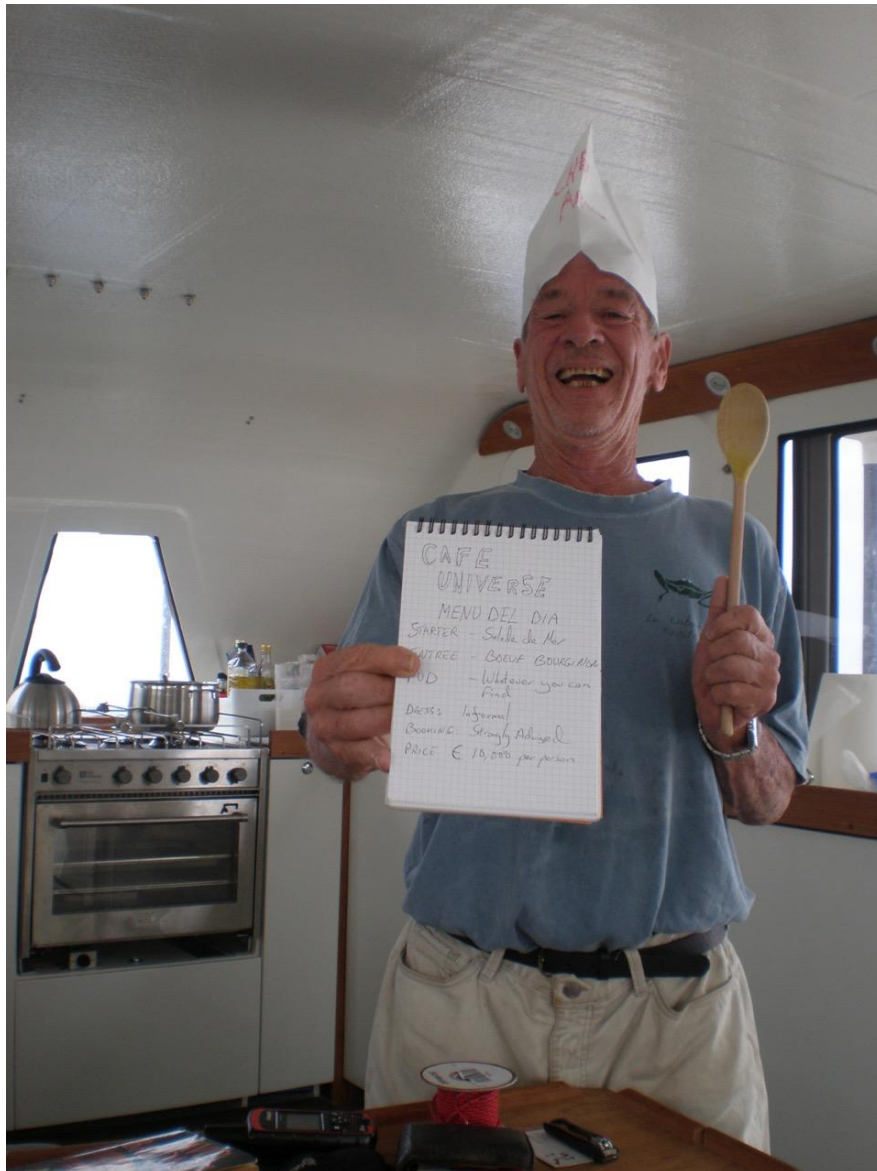 CAFE
UNIVERSE
MENU DEL DIA
STARTER - Salade de Mer
ENTREE - BOEUF BOURGINON
- Whatever you can
find
DRESS: Informal
BOOKING: Strongly Advised
PRICE € 10,000 per person